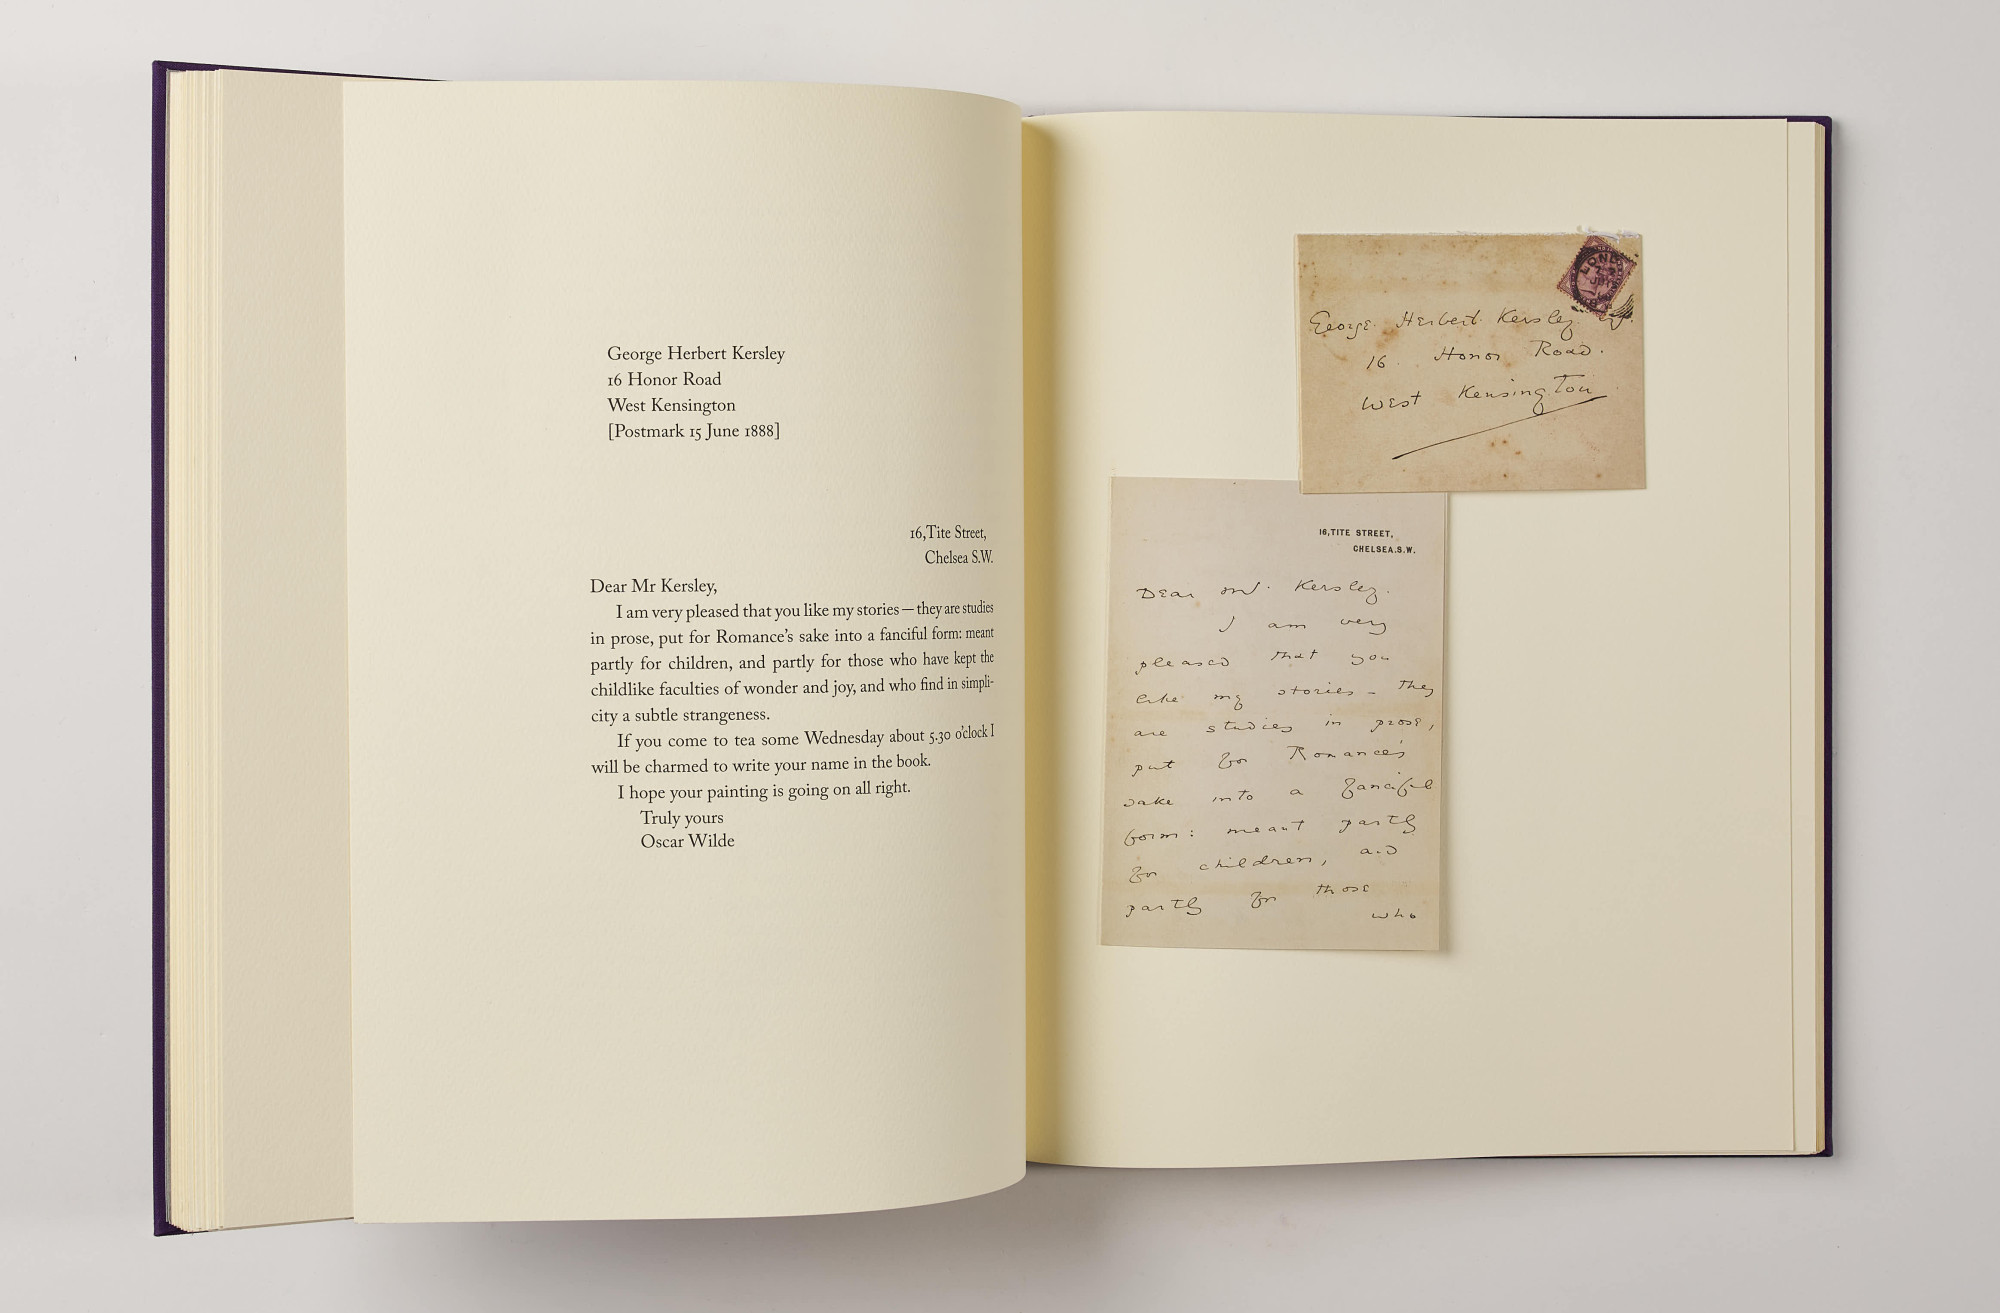 George Herbert Kersley
16 Honor Road
West Kensington
[Postmark 15 June 1888]
16, Tite Street,
Chelsea S.W.
Dear Mr Kersley,
I am very pleased that you like my stories — they are studies
in prose, put for Romance's sake into a fanciful form: meant
partly for children, and partly for those who have kept the
childlike faculties of wonder and joy, and who find in simpli-
city a subtle strangeness.
If you come to tea some Wednesday about 5.30 o'clock I
will be charmed to write your name in the book.
I hope your painting is going on all right.
Truly yours
Oscar Wilde
George Herbert Kersley
16 Honor Road.
West Kensington
16, TITE STREET,
CHELSEA. S.W.
Dear Mr. Kersley.
I am very
pleased that you
like my stories – they
are studies in prose,
put for Romance's
sake into a fanciful
form: meant partly
for children, and
partly for those
who